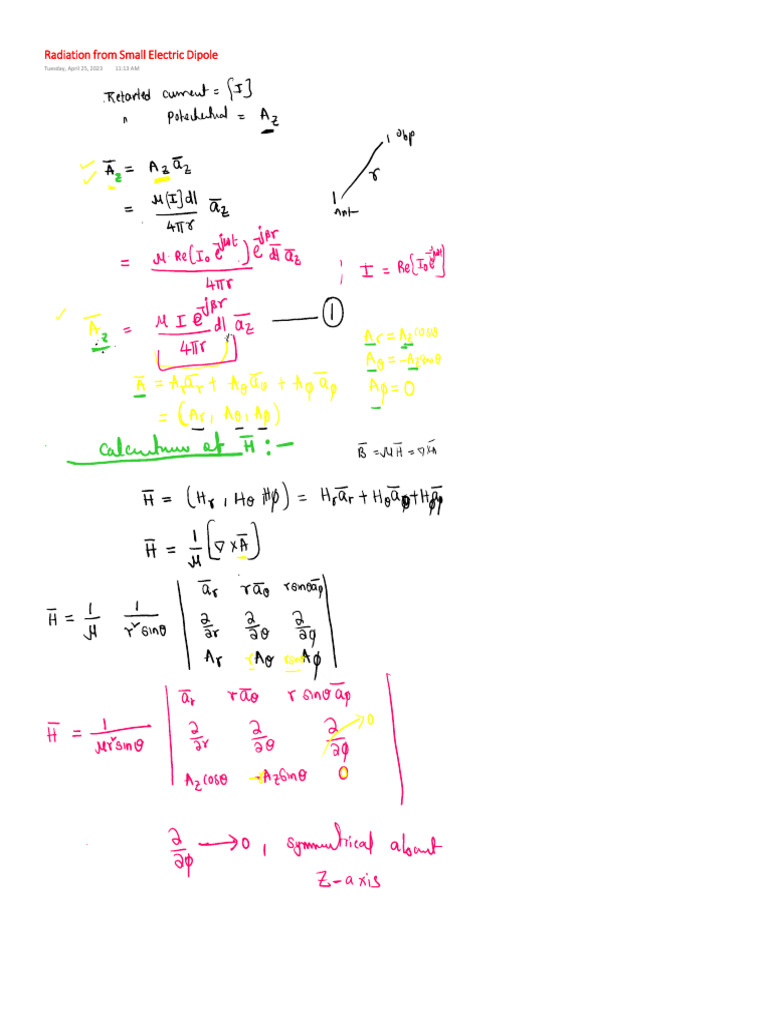 Radiation from Small Electric Dipole
Tuesday, April 25, 2023 11:13 AM
Retarded current = [I]
〃 Potechectrial = A_z
Ā_z = A_z ā_z
= μ[I]dl / 4πr ā_z
obp
r
Ant
= μ·Re(I₀ e^{jωt}) e^{-jβr} dl ā_z / 4πr ; I = Re[I₀ e^{jωt}]
Ā_z = μ I e^{-jβr} dl / 4πr ā_z —— ①
A_r = A_z cosθ
A_θ = -A_z sinθ
A_φ = 0
Ā = A_r ā_r + A_θ ā_θ + A_φ ā_φ
= (A_r, A_θ, A_φ)
Calculations of H̄ :-
B̄ = μH̄ = ∇×Ā
H̄ = (H_r, H_θ, H_φ) = H_r ā_r + H_θ ā_θ + H_φ ā_φ
H̄ = 1/μ [∇×Ā]
H̄ = 1/μ 1/r² sinθ | ā_r rā_θ r sinθ ā_φ
∂/∂r ∂/∂θ ∂/∂φ
A_r rA_θ r sinθ A_φ |
H̄ = 1/μr² sinθ | ā_r rā_θ r sinθ ā_φ
∂/∂r ∂/∂θ ∂/∂φ → 0
A_z cosθ -rA_z sinθ 0 |
∂/∂φ → 0, symmutrical about
Z-axis